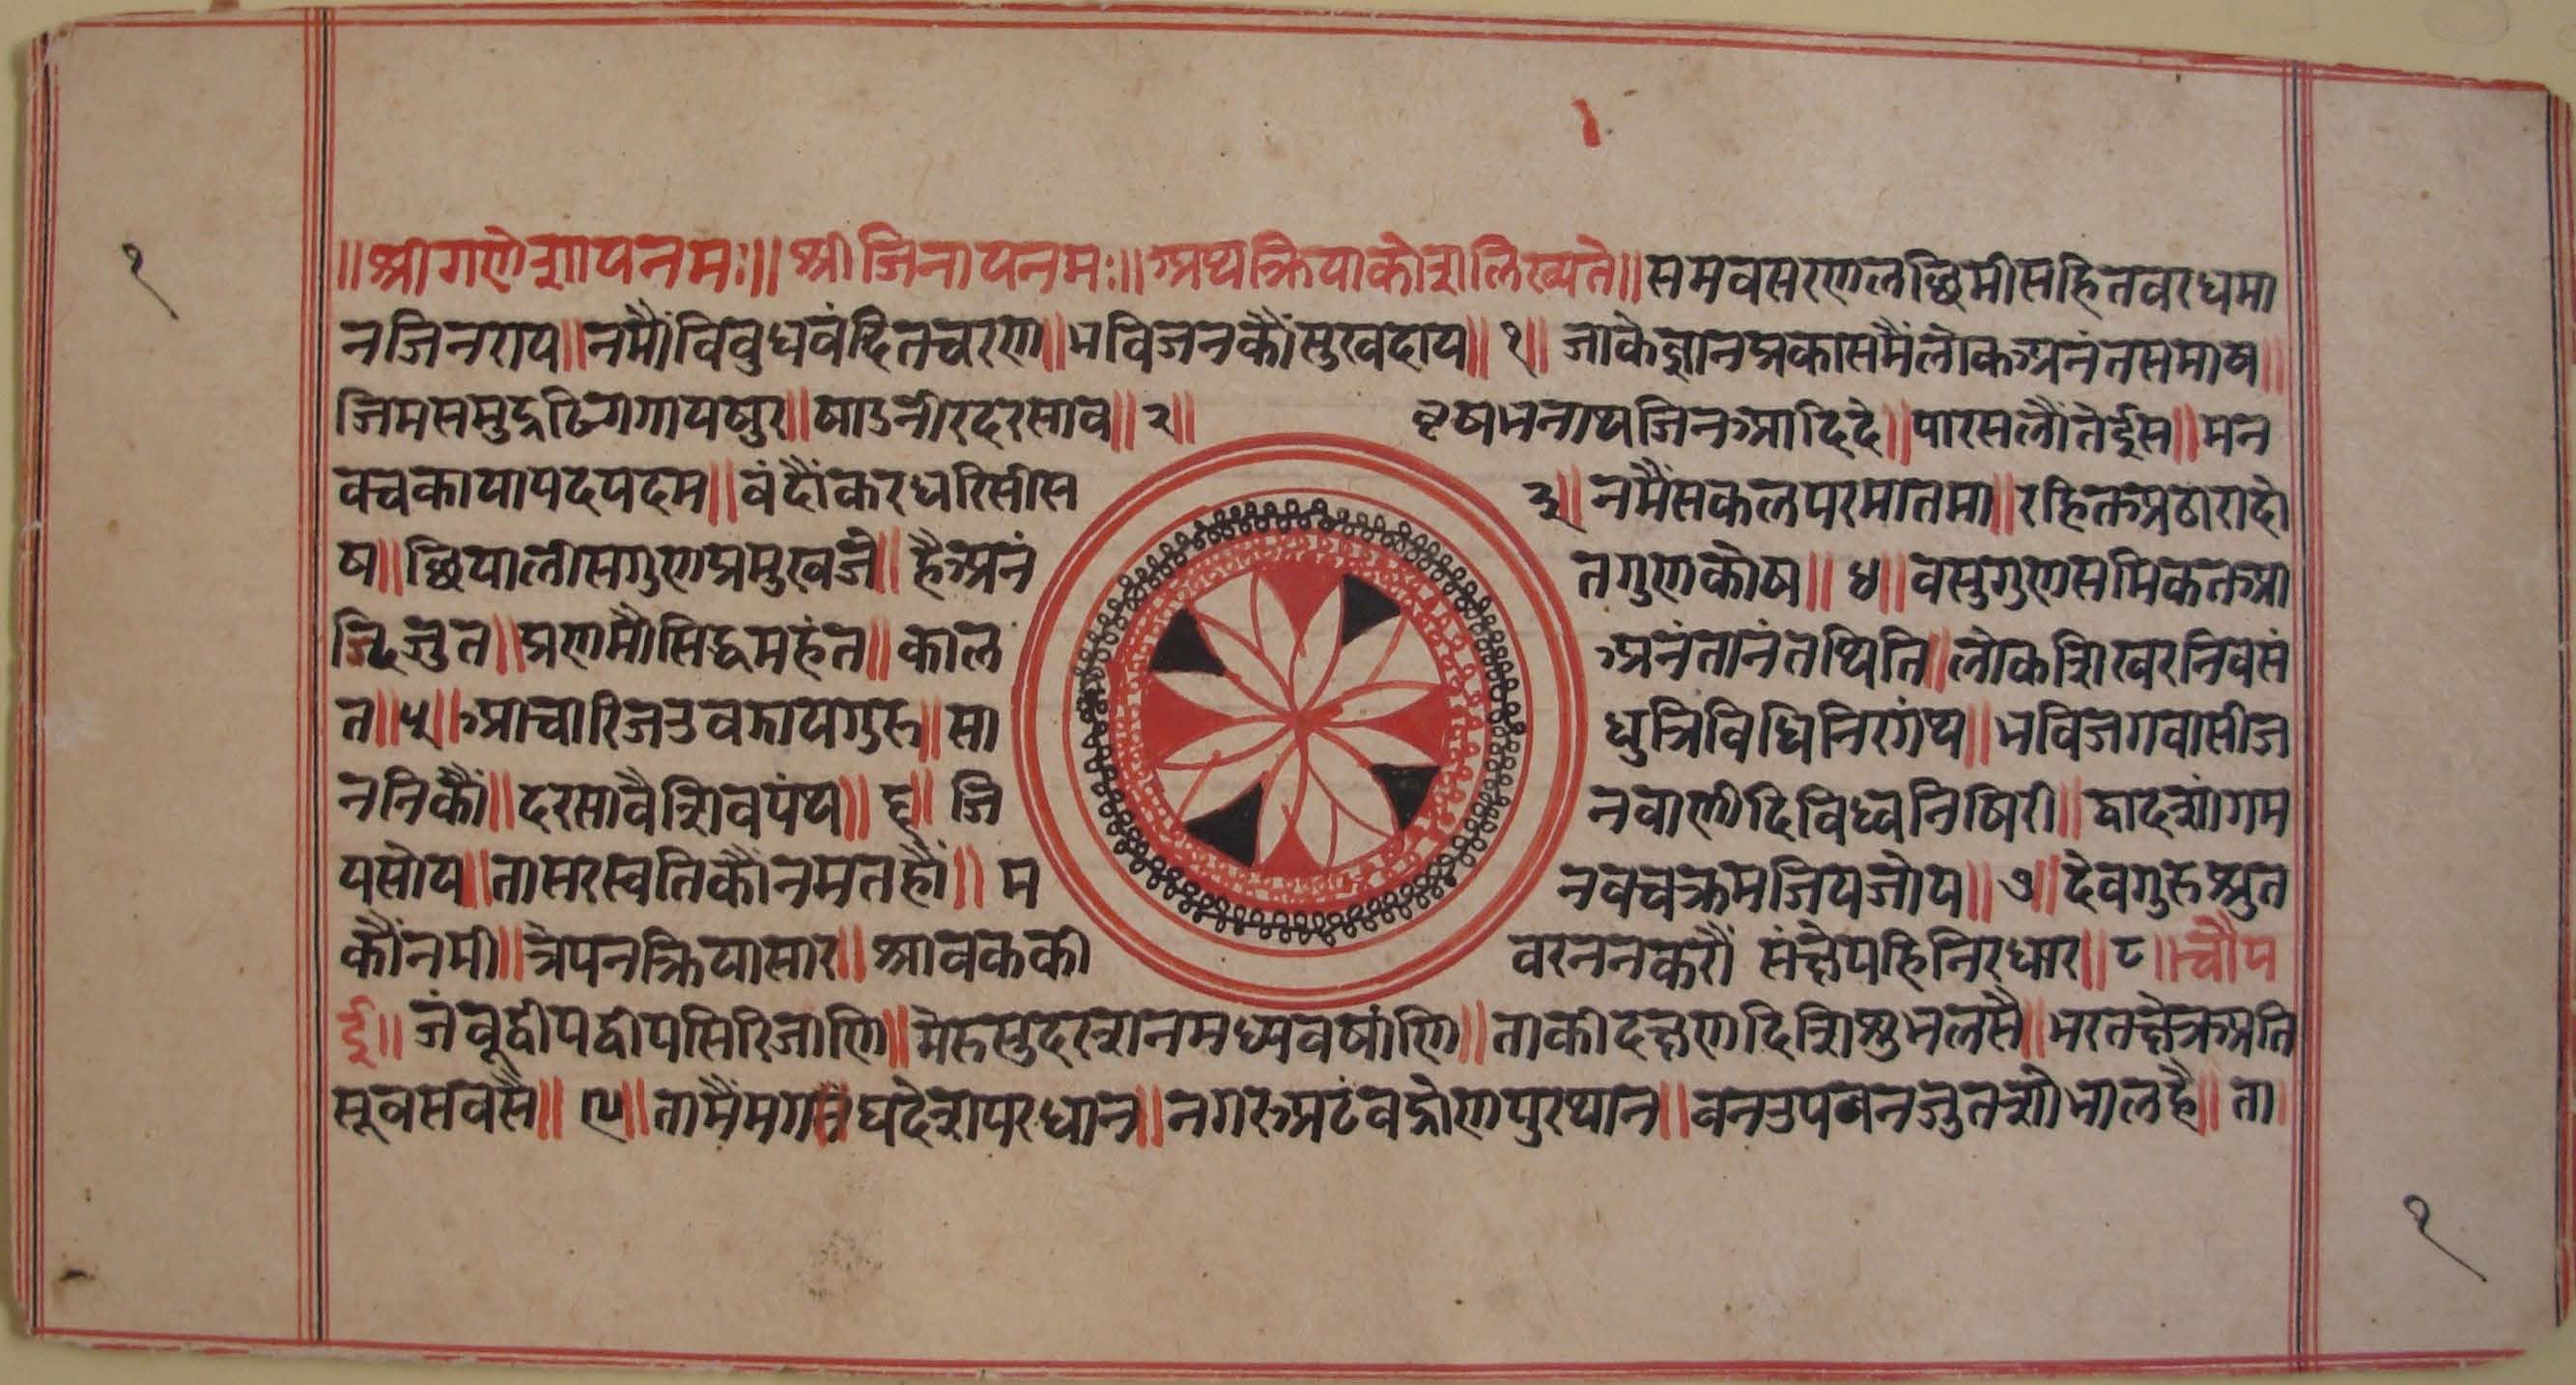 १
॥श्रीगणेशायनमः॥॥श्रीजिनायनमः॥अथक्रियाकोशलिख्यते॥समवसरणलछिमीसहितवरधमा
नजिनराय॥नमौंविवुधवंदितचरण॥भविजनकौंसुखदाय॥१॥जाकेज्ञानप्रकासमैंलोकअनंतसमाष॥
जिमसमुद्रढिगगायषुर॥षाउनीरदरसाव॥२॥ वृषभनाथजिनआदिदे॥पारसलौंतेईस॥मन
वचकायापदपदम॥वंदौंकरधरिसीस ३॥नमैंसकलपरमातमा॥रहितअठारादो
ष॥छियालीसगुणप्रमुखजे॥हैअनं तगुणकोष॥४॥वसुगुणसमिकतआ
दिजुत॥प्रणमौसिद्धमहंत॥काल अनंतानंतथिति॥लोकशिखरनिवसं
त॥५॥आचारिजउवझायगुरु॥सा धुत्रिविधिनिरगंथ॥भविजगवासीज
ननिकौं॥दरसावैशिवपंथ॥६॥जि नवाणीदिविध्वनिषिरी॥द्वादशांगम
यसोय॥तासरस्वतिकौंनमतहौं॥म नवचक्रमजियजोय॥७॥देवगुरुश्रुत
कौंनमी॥त्रेपनक्रियासार॥श्रावककी वरननकरौं संक्षेपहिनिरधार॥८॥चौप
ई॥जंवूद्वीपद्वीपसिरिजाणि॥मेरुसुदरशनमध्यवषांणि॥ताकीदक्षणदिशिशुभलसै॥भरतक्षेत्रअति
सूवसवसै॥९॥तामैंमगधदेशपरधान॥नगरअटंवद्रोणपुरथान॥वनउपवनजुतशोभालहै॥ता
१